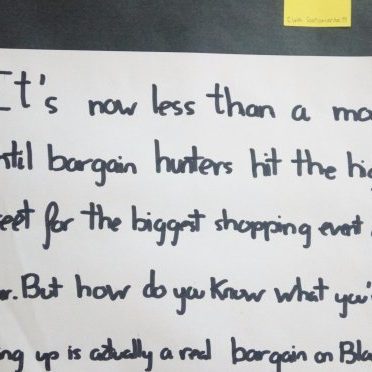 It's now less than a mo
ntil bargain hunters hit the hig
eet for the biggest shopping event
r. But how do you know what you'
ng up is actually a real bargain on Bla